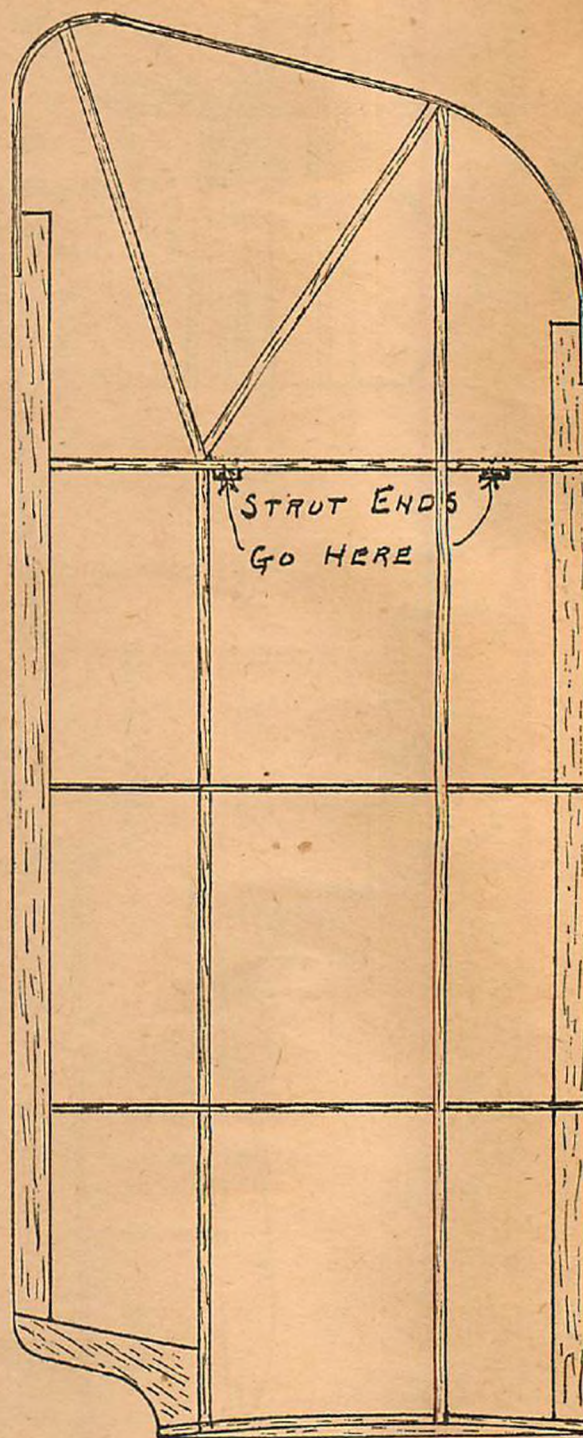 STRUT ENDS
GO HERE